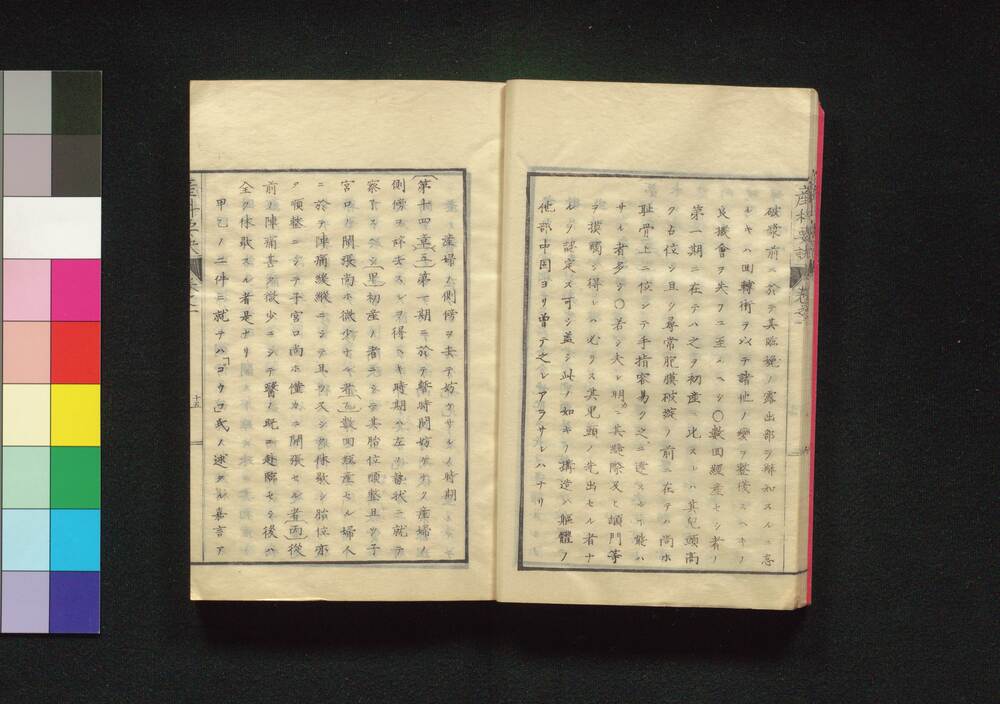 破漿前ニ於テ其臨娩ノ露出部ヲ解知スルニ怠
ルキハ回轉術ヲ以テ諸他ノ變ヲ整復スヘキノ
良機會ヲ失フニ至ルヘシ〇數回經産セシ者ノ
第一期ニ在テハ之ヲ初産ニ比スレハ其兒頭高
ク占位シ且ク尋常胞膜破綻ノ前ニ在テハ尚ホ
耻骨上ニ位シテ手指容易ク之ニ達スル能ハ
サル者多シ〇若シ夫レ明カニ其縫際又ヒ顖門等
ヲ摸觸シ得レハ必ラス其兒頭ノ先出セル者ナ
ルヲ認定ス可シ蓋シ此ノ如キノ構造ハ軀體ノ
他部中固ヨリ曽テ之レアラサレハナリ
産婦ノ側傍ヲ去テ妨ケサルノ時期
第十四章(五)第一期ニ於テ暫時間妨ケナク産婦ノ
側傍ヲ辞去スルヲ得ヘキ時期ハ左ノ諸状ニ就テ
察
(甲)初産ノ者ニシテ其胎位順整且ツ子
宮口ノ開張尚ホ微少ナル者(乙)數回經産セル婦人
ニ於テ陣痛緩縦ニシテ且ツ又シ休歇シ胎位亦
タ順整ニシテ子宮口尚ホ僅カニ開張セル者(丙)後
前ノ陣痛甚タ微少ニシテ醫ノ既ニ赴臨セシ後ハ
全ク休歇スル者是ナリ
甲乙ノ二件ニ就テハ「ゴウ」氏ノ述タル嘉言ア
産科要訣
卷之一
十五